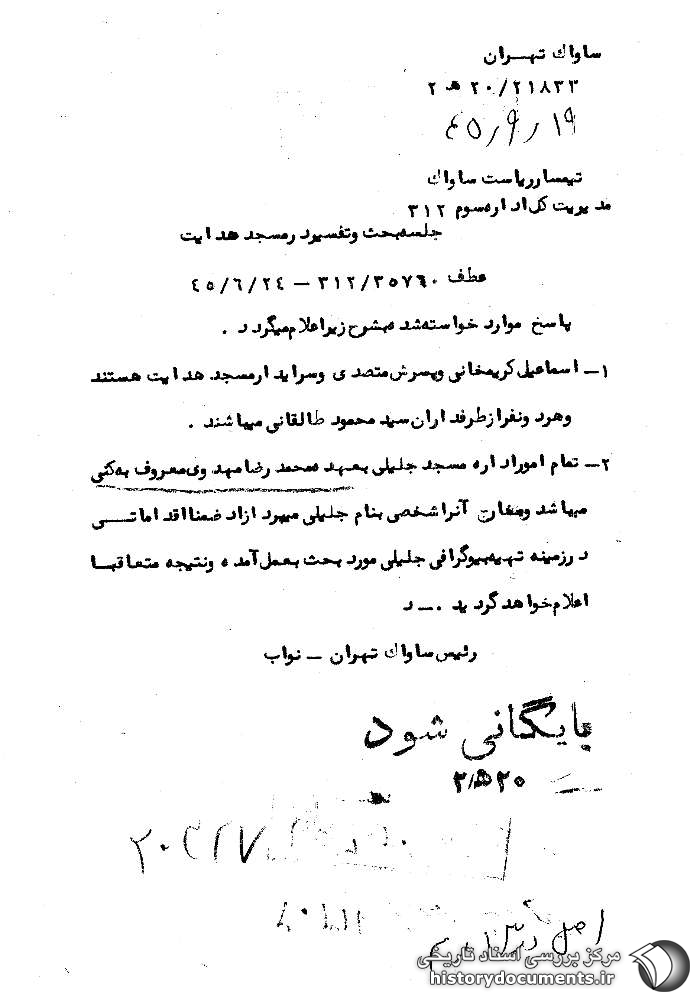 ساواك تهران
۲۰/۲۱۸۳۳ هـ ۲
۴۵/۹/۱۹
تیمسار ریاست ساواك
مدیریت كل اداره سوم ۳۱۲
جلسه بحث و تفسیر در مسجد هدایت
عطف ۳۱۲/۳۵۷۶۰ – ۴۵/۶/۲۴
پاسخ موارد خواسته شده بشرح زیر اعلام میگردد .
۱– اسماعیل كریمخانی و پسرش متصدی و سرایدار مسجد هدایت هستند
و هر دو نفر از طرفداران سید محمود طالقانی میباشند .
۲– تمام امور اداره مسجد جلیلی بعهده محمد رضا مهدوی معروف به كنی
میباشد و مخارج آنرا شخصی بنام جلیلی میپردازد ضمنا اقداماتی
در زمینه تهیه بیوگرافی جلیلی مورد بحث بعمل آمده و نتیجه متعاقبا
اعلام خواهد گردید . – د
رئیس ساواك تهران – نواب
بایگانی شود
۲۰هـ۲
اصل در
مرکز بررسی اسناد تاریخی
historydocuments.ir